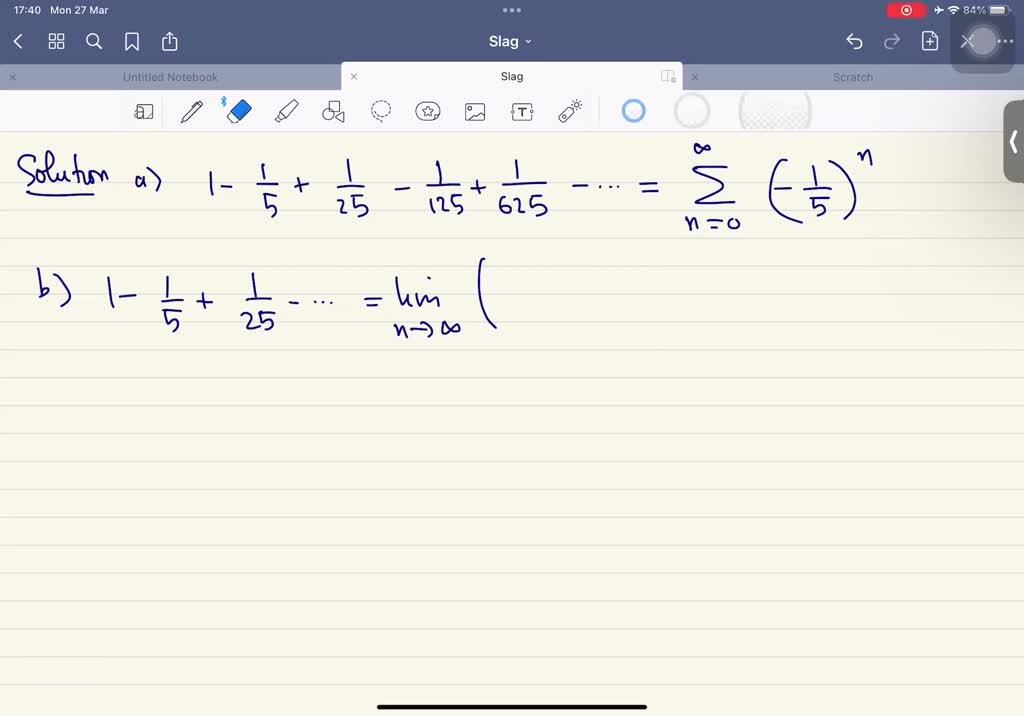 17:40 Mon 27 Mar
84%
Slag
Untitled Notebook
Slag
Scratch
Solution a) 1 - 1/5 + 1/25 - 1/125 + 1/625 - ... = ∑_{n=0}^{∞} (-1/5)^n
b) 1 - 1/5 + 1/25 - ... = lim_{n→∞} (